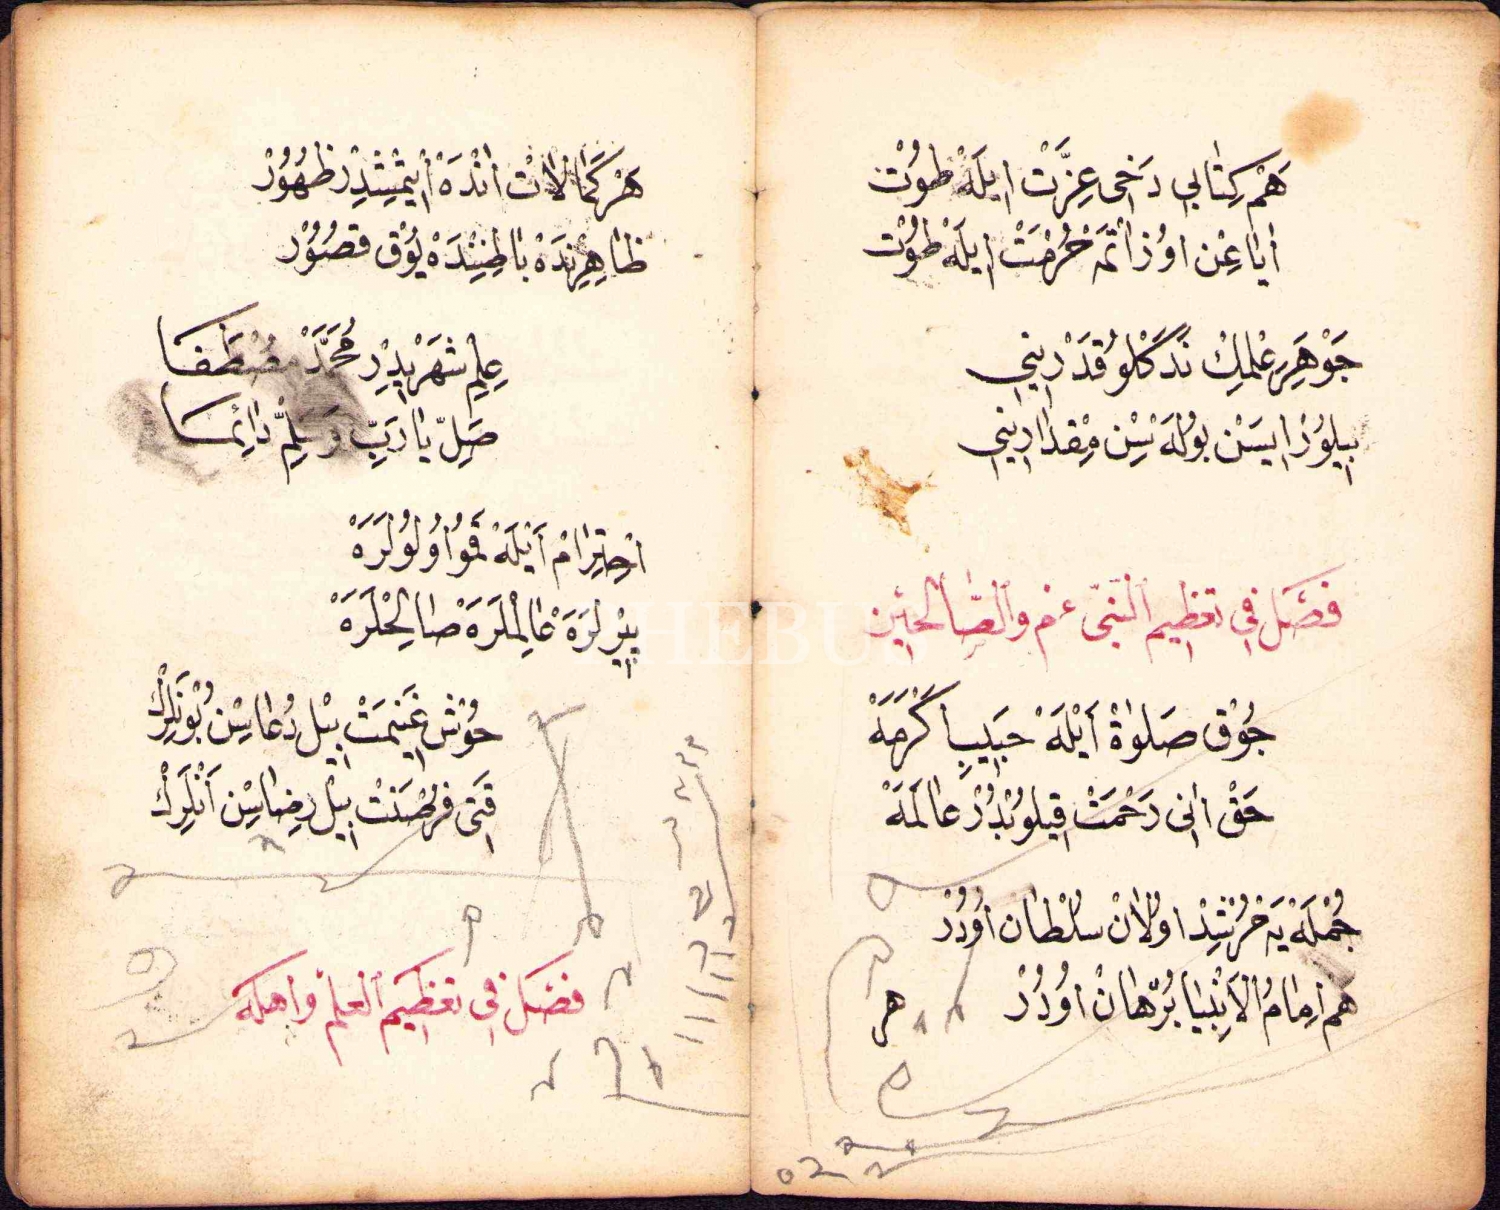 هَمْ كِتَابِي دَخِى عِزَّتْ ايلَهْ طوُتْ
ايَاغِنْ اوُزَاتْمَهْ حُرْمَتْ ايلَهْ طوُتْ
جَوْهَرِ عِلْمِكْ نَدَكْلوُ قَدْرِينِي
بِيلوُرْ ايسَنْ بوُلَهْ سِنْ مِقْدَارِينِي
فصل في تعظيم النبي عم والصالحين
چوُقْ صَلوٰةْ أَيْلَهْ حَبِيبِ أَكْرَمَهْ
حَقْ انِى رَحْمَتْ قِيلوُبْدُرْ عَالَمَهْ
جُمْلَهْ يَهْ مُرْشِدْ اوُلانْ سُلْطَانْ اوُدُرْ
هم امَامُ الأَنْبِيَا بُرْهَانْ اوُدُرْ
هر
هَرْ كَمَالاتْ انْدَهْ أَيْتْمِشْدِرْ ظُهُورْ
ظَاهِرِنْدَهْ بَاطِنِنْدَهْ يوُقْ قصُوُرْ
عِلِم شَهْرِيدِرْ مُحَمَّدْ مُصْطَفَا
صَلِّ يَا رَبِّ وَسَلِّمْ دَائِمَا
احْتِرَامْ أَيْلَهْ قَموُ اوُلوُلَرَهْ
پِيرْلَرَهْ عَالِمْلَرَهْ صَالِحْلَرَهْ
خوُشْ غَنِيمَتْ بِيلْ دُعَاسِنْ بوُنْلَرِكْ
قَتِى فُرْصَتْ بِيلْ رِضَاسِنْ أَنْلَرِكْ
فصل في تعظيم العلم واهله
PHEBUS